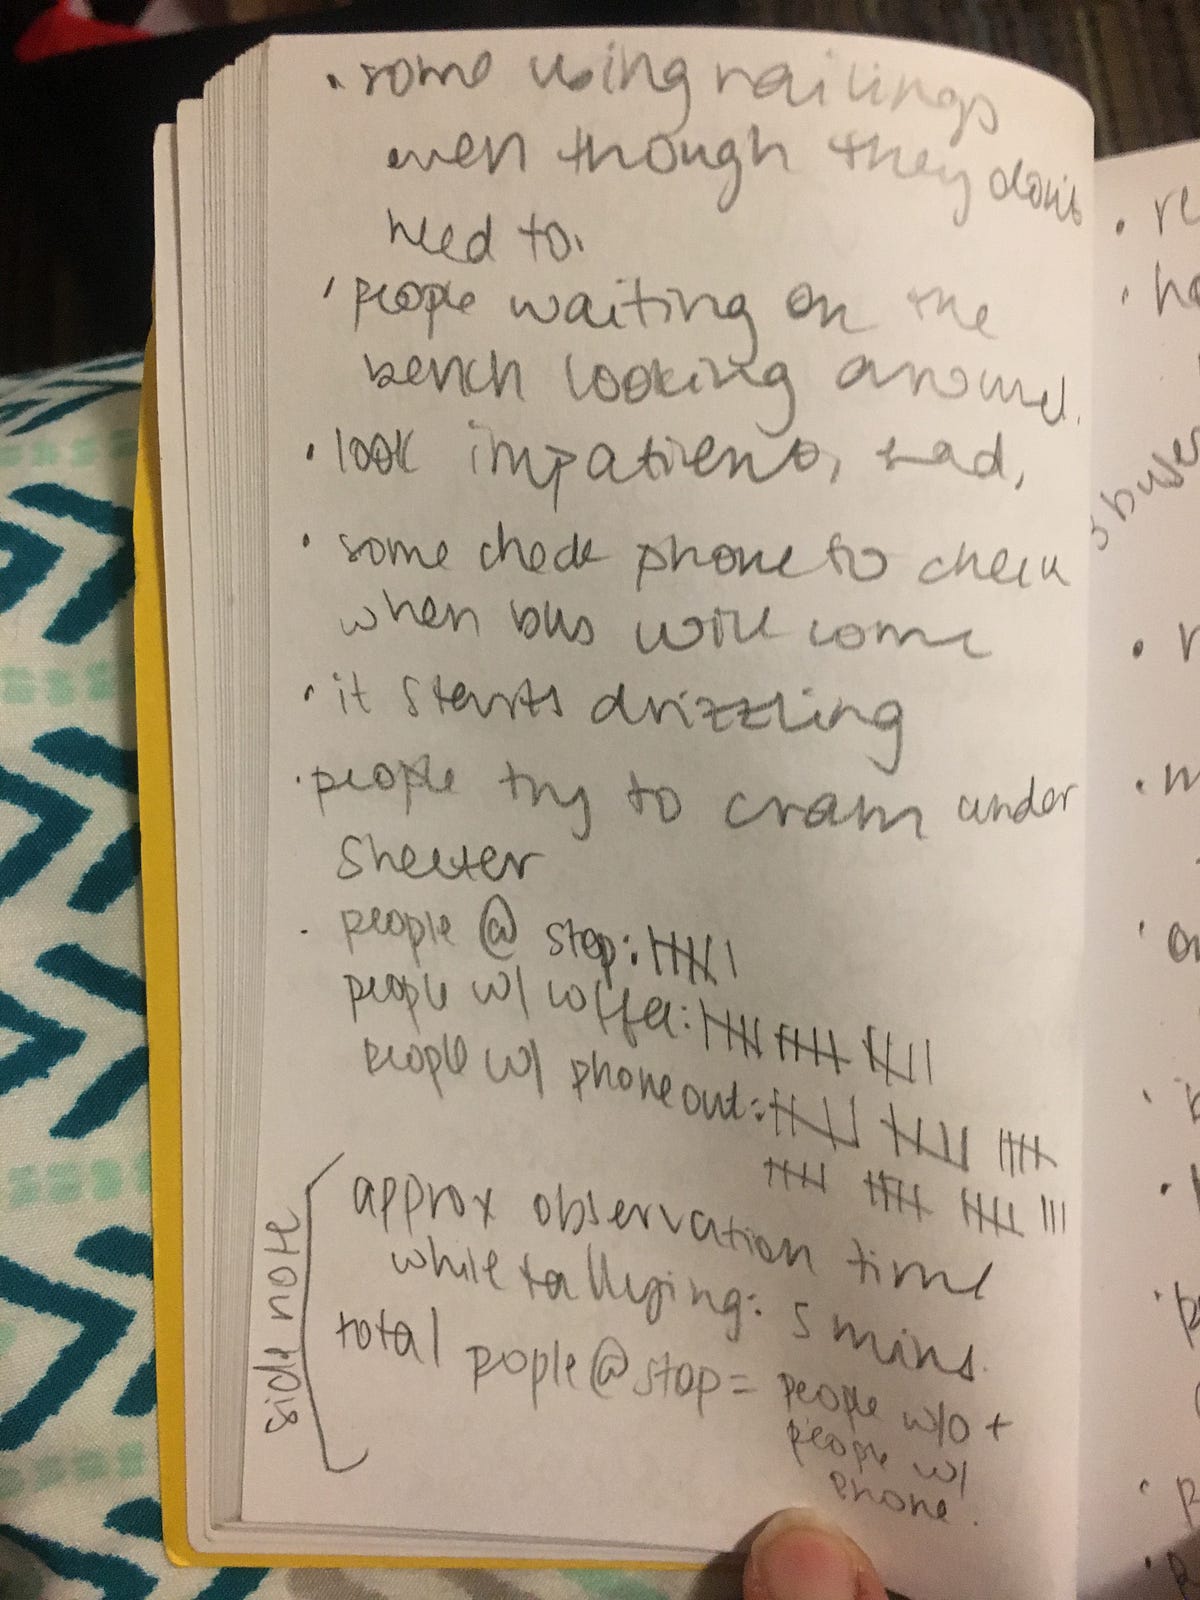 • some using railings
even though they don't
need to.
• people waiting on the
bench looking around.
• look impatient, sad,
• some check phone to check
when bus will come
• it starts drizzling
• people try to cram under
Shelter
• people @ stop: 卌 |
people w/ coffee: 卌 卌 卌 |
people w/ phone out: 卌 卌 卌
卌 卌 卌 |||
side note
approx observation time
while tallying: 5 mins.
total pople @ stop = people w/o +
people w/
phone.
• re
• ho
buses